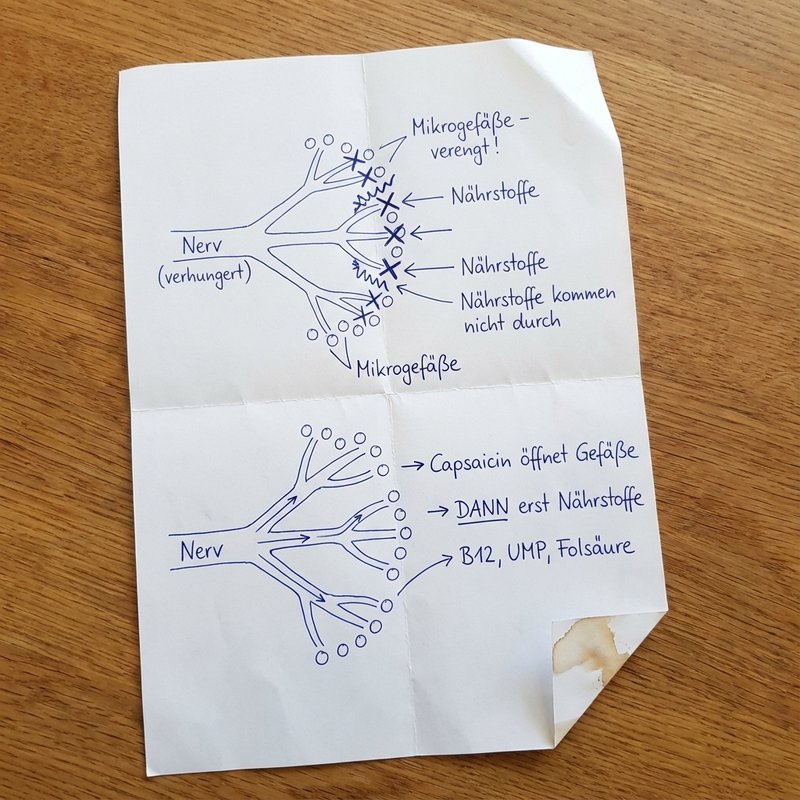 Mikrogefäße –
verengt!
Nährstoffe
Nerv
(verhungert)
Nährstoffe
Nährstoffe kommen
nicht durch
Mikrogefäße
→ Capsaicin öffnet Gefäße
→ DANN erst Nährstoffe
Nerv
B12, UMP, Folsäure